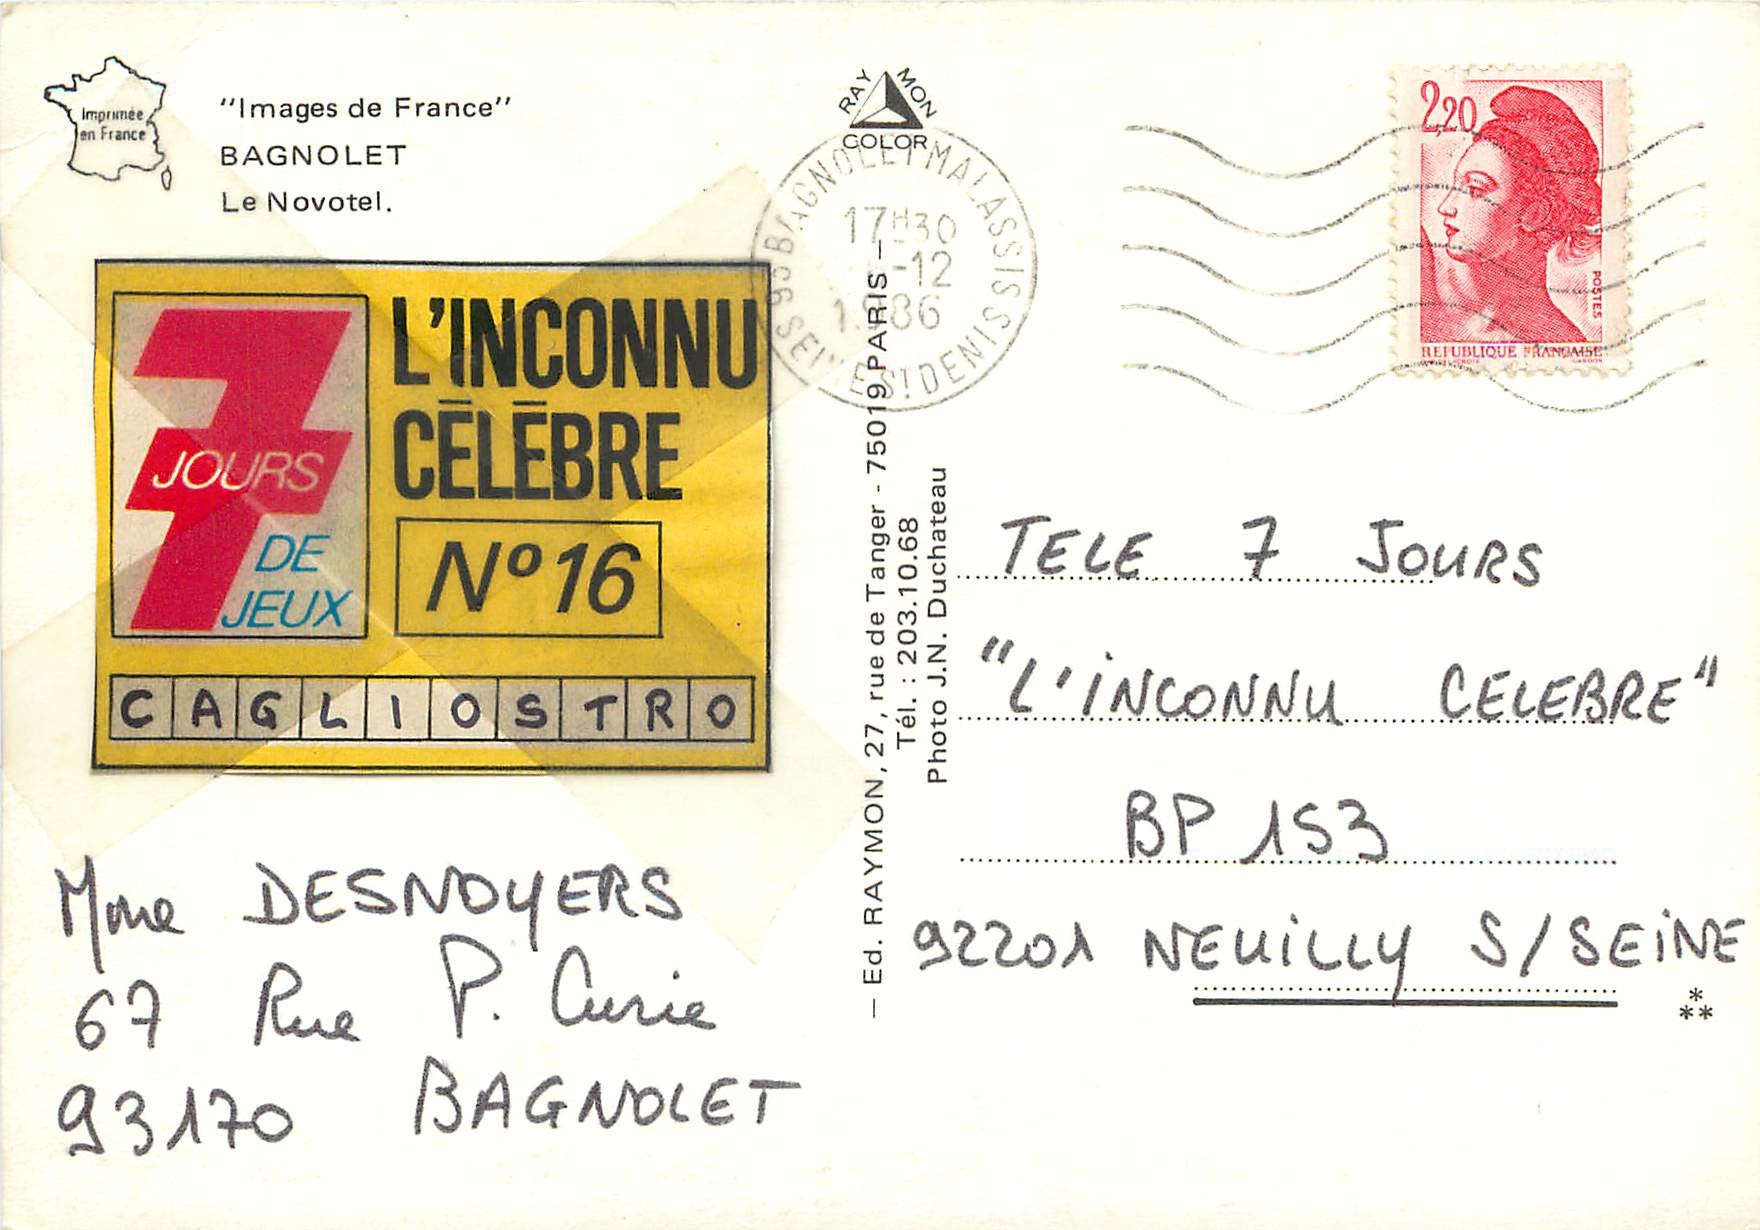 Imprimée
en France
"Images de France"
BAGNOLET
Le Novotel.
RAYMON
COLOR
93 BAGNOLET MALASSIS
17H30
-12
1986
SEINE ST DENIS
2,20
POSTES
REPUBLIQUE FRANÇAISE
7
JOURS
DE
JEUX
L'INCONNU
CÉLÈBRE
N° 16
CAGLIOSTRO
Mme DESNOYERS
67 Rue P. Curie
93170 BAGNOLET
— Ed. RAYMON, 27, rue de Tanger - 75019 PARIS —
Tél. : 203.10.68
Photo J.N. Duchateau
TELE 7 JOURS
"L'INCONNU CELEBRE"
BP 153
92201 NEUILLY S/SEINE